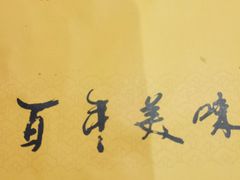 百年美味